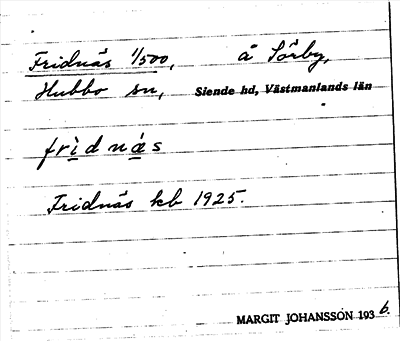 Fridnäs 1/500, å Sörby,
Hubbo sn, Siende hd, Västmanlands län
frìdnás
Fridnäs kb 1925.
MARGIT JOHANSSON 1936.